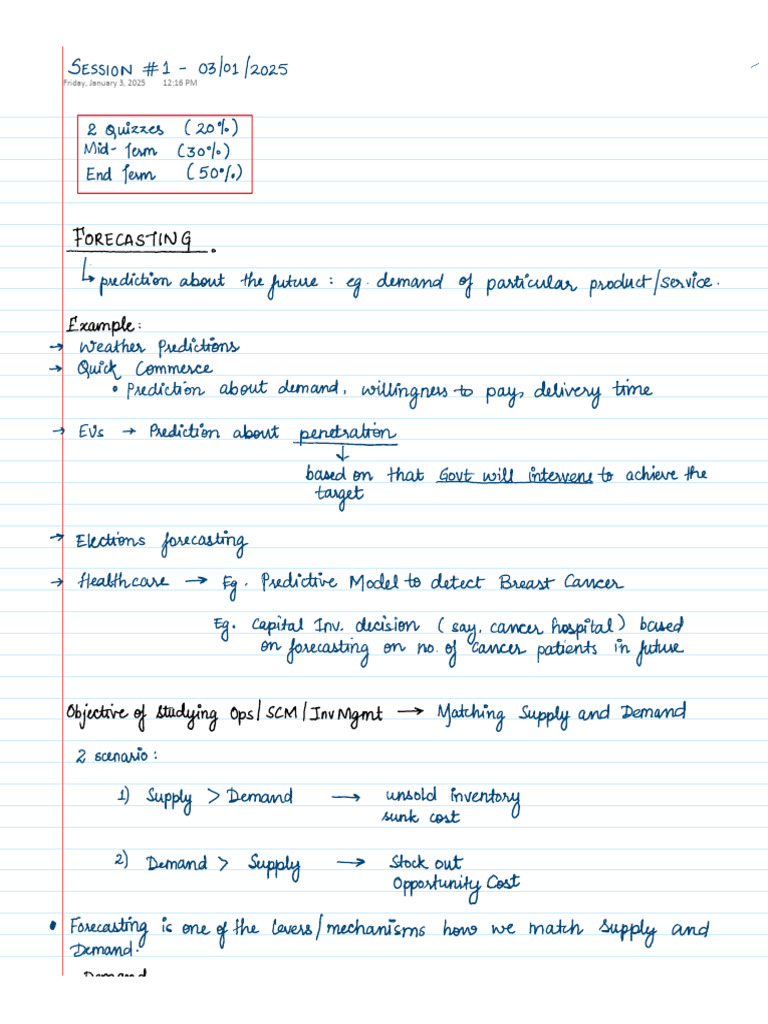 SESSION #1 - 03/01/2025
Friday, January 3, 2025 12:16 PM
2 Quizzes (20%)
Mid-Term (30%)
End Term (50%)
FORECASTING.
prediction about the future : eg. demand of particular product/service.
Example:
→ Weather Predictions
→ Quick Commerce
• Prediction about demand, willingness to pay, delivery time
→ EVs → Prediction about penetration
↓
based on that Govt will intervene to achieve the
target
→ Elections forecasting
→ Healthcare → Eg. Predictive Model to detect Breast Cancer
Eg. Capital Inv. decision (say, cancer hospital) based
on forecasting on no. of cancer patients in future
Objective of studying Ops/SCM/Inv Mgmt → Matching Supply and Demand
2 scenario:
1) Supply > Demand → unsold inventory
sunk cost
2) Demand > Supply → Stock out
Opportunity Cost
• Forecasting is one of the levers/mechanisms how we match supply and
Demand.
Demand